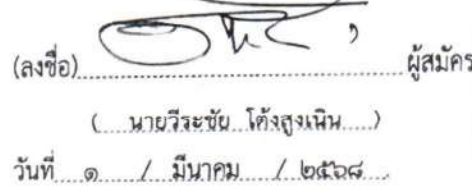 (ลงชื่อ) ผู้สมัคร
( นายวีระชัย โต้งสูงเนิน )
วันที่ ๑ / มีนาคม / ๒๕๖๘